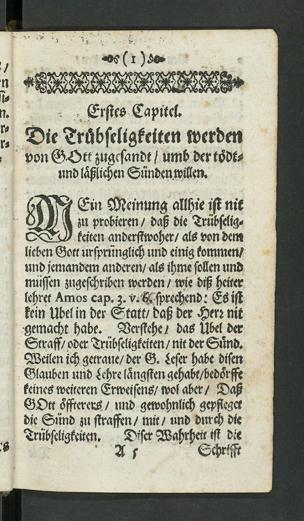 (1)
Erstes Capitel.
Die Trübseligkeiten werden
von GOtt zugesandt / umb der tödt-
und läßlichen Sünden willen.
MEin Meinung allhie ist nit
zu probieren / daß die Trübselig-
keiten anderstwoher / als von dem
lieben Gott ursprünglich und einig kommen /
und jemandem anderen / als ihme sollen und
müssen zugeschriben werden / wie diß heiter
lehret Amos cap. 3. v. 6. sprechend: Es ist
kein Ubel in der Statt / daß der Herz nit
gemacht habe. Verstehe / das Ubel der
Straff / oder Trübseligkeiten / nit der Sünd.
Weilen ich getraue / der G. Leser habe disen
Glauben und Lehre längsten gehabt / bedörffe
keines weiteren Erweisens / wol aber / Daß
GOtt öffterers / und gewohnlich gepfleget
die Sünd zu straffen / mit / und durch die
Trübseligkeiten. Diser Wahrheit ist die
A 5 Schrifft